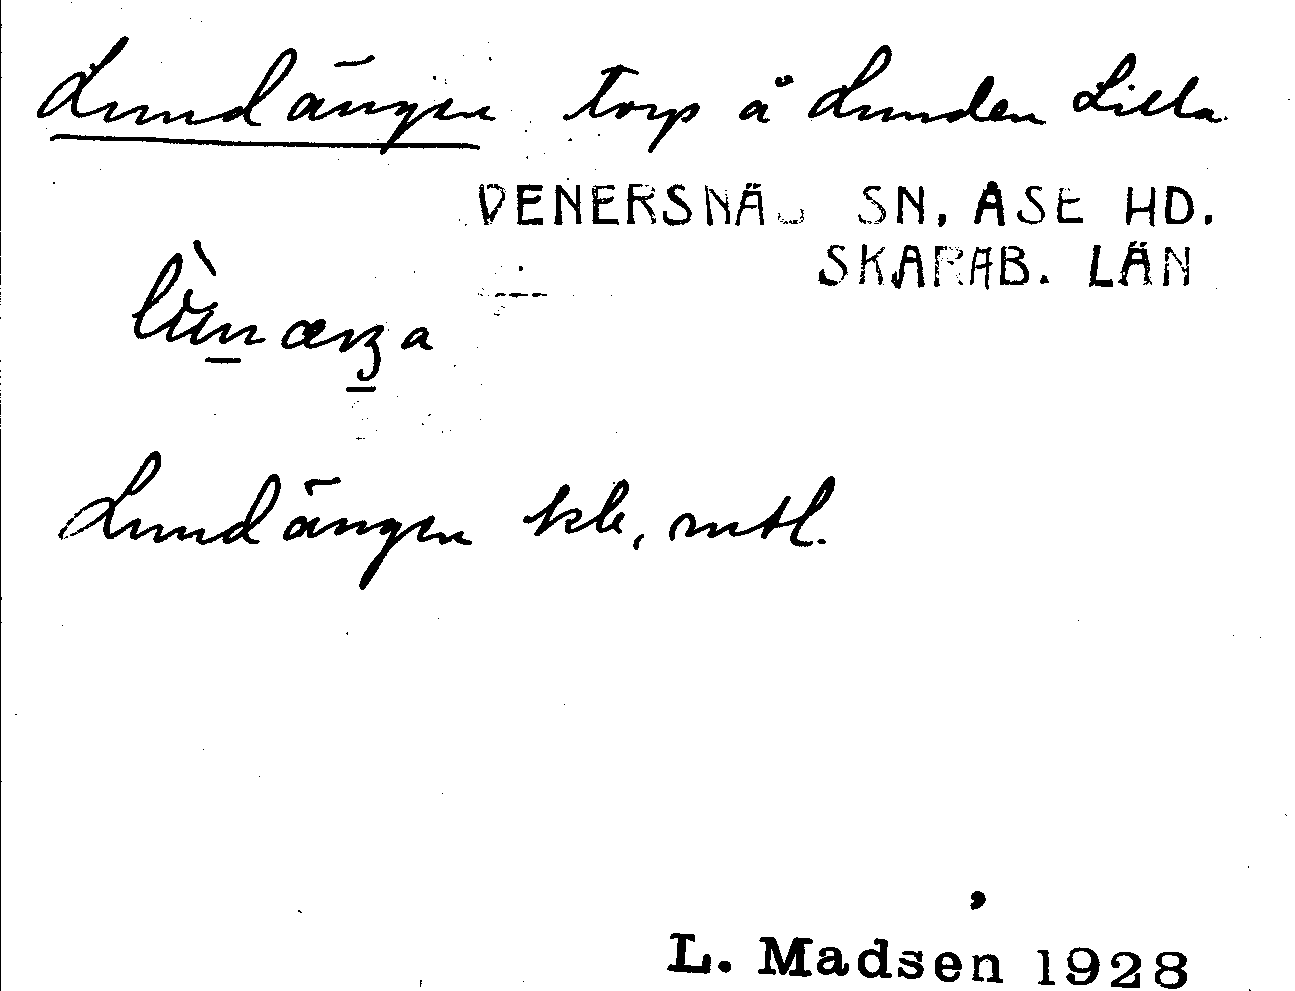 Lundängen torp å Lunden Lilla
VENERSNÄS SN, ÅSE HD.
SKARAB. LÄN
Lundängen kb, mtl.
L. Madsen 1928